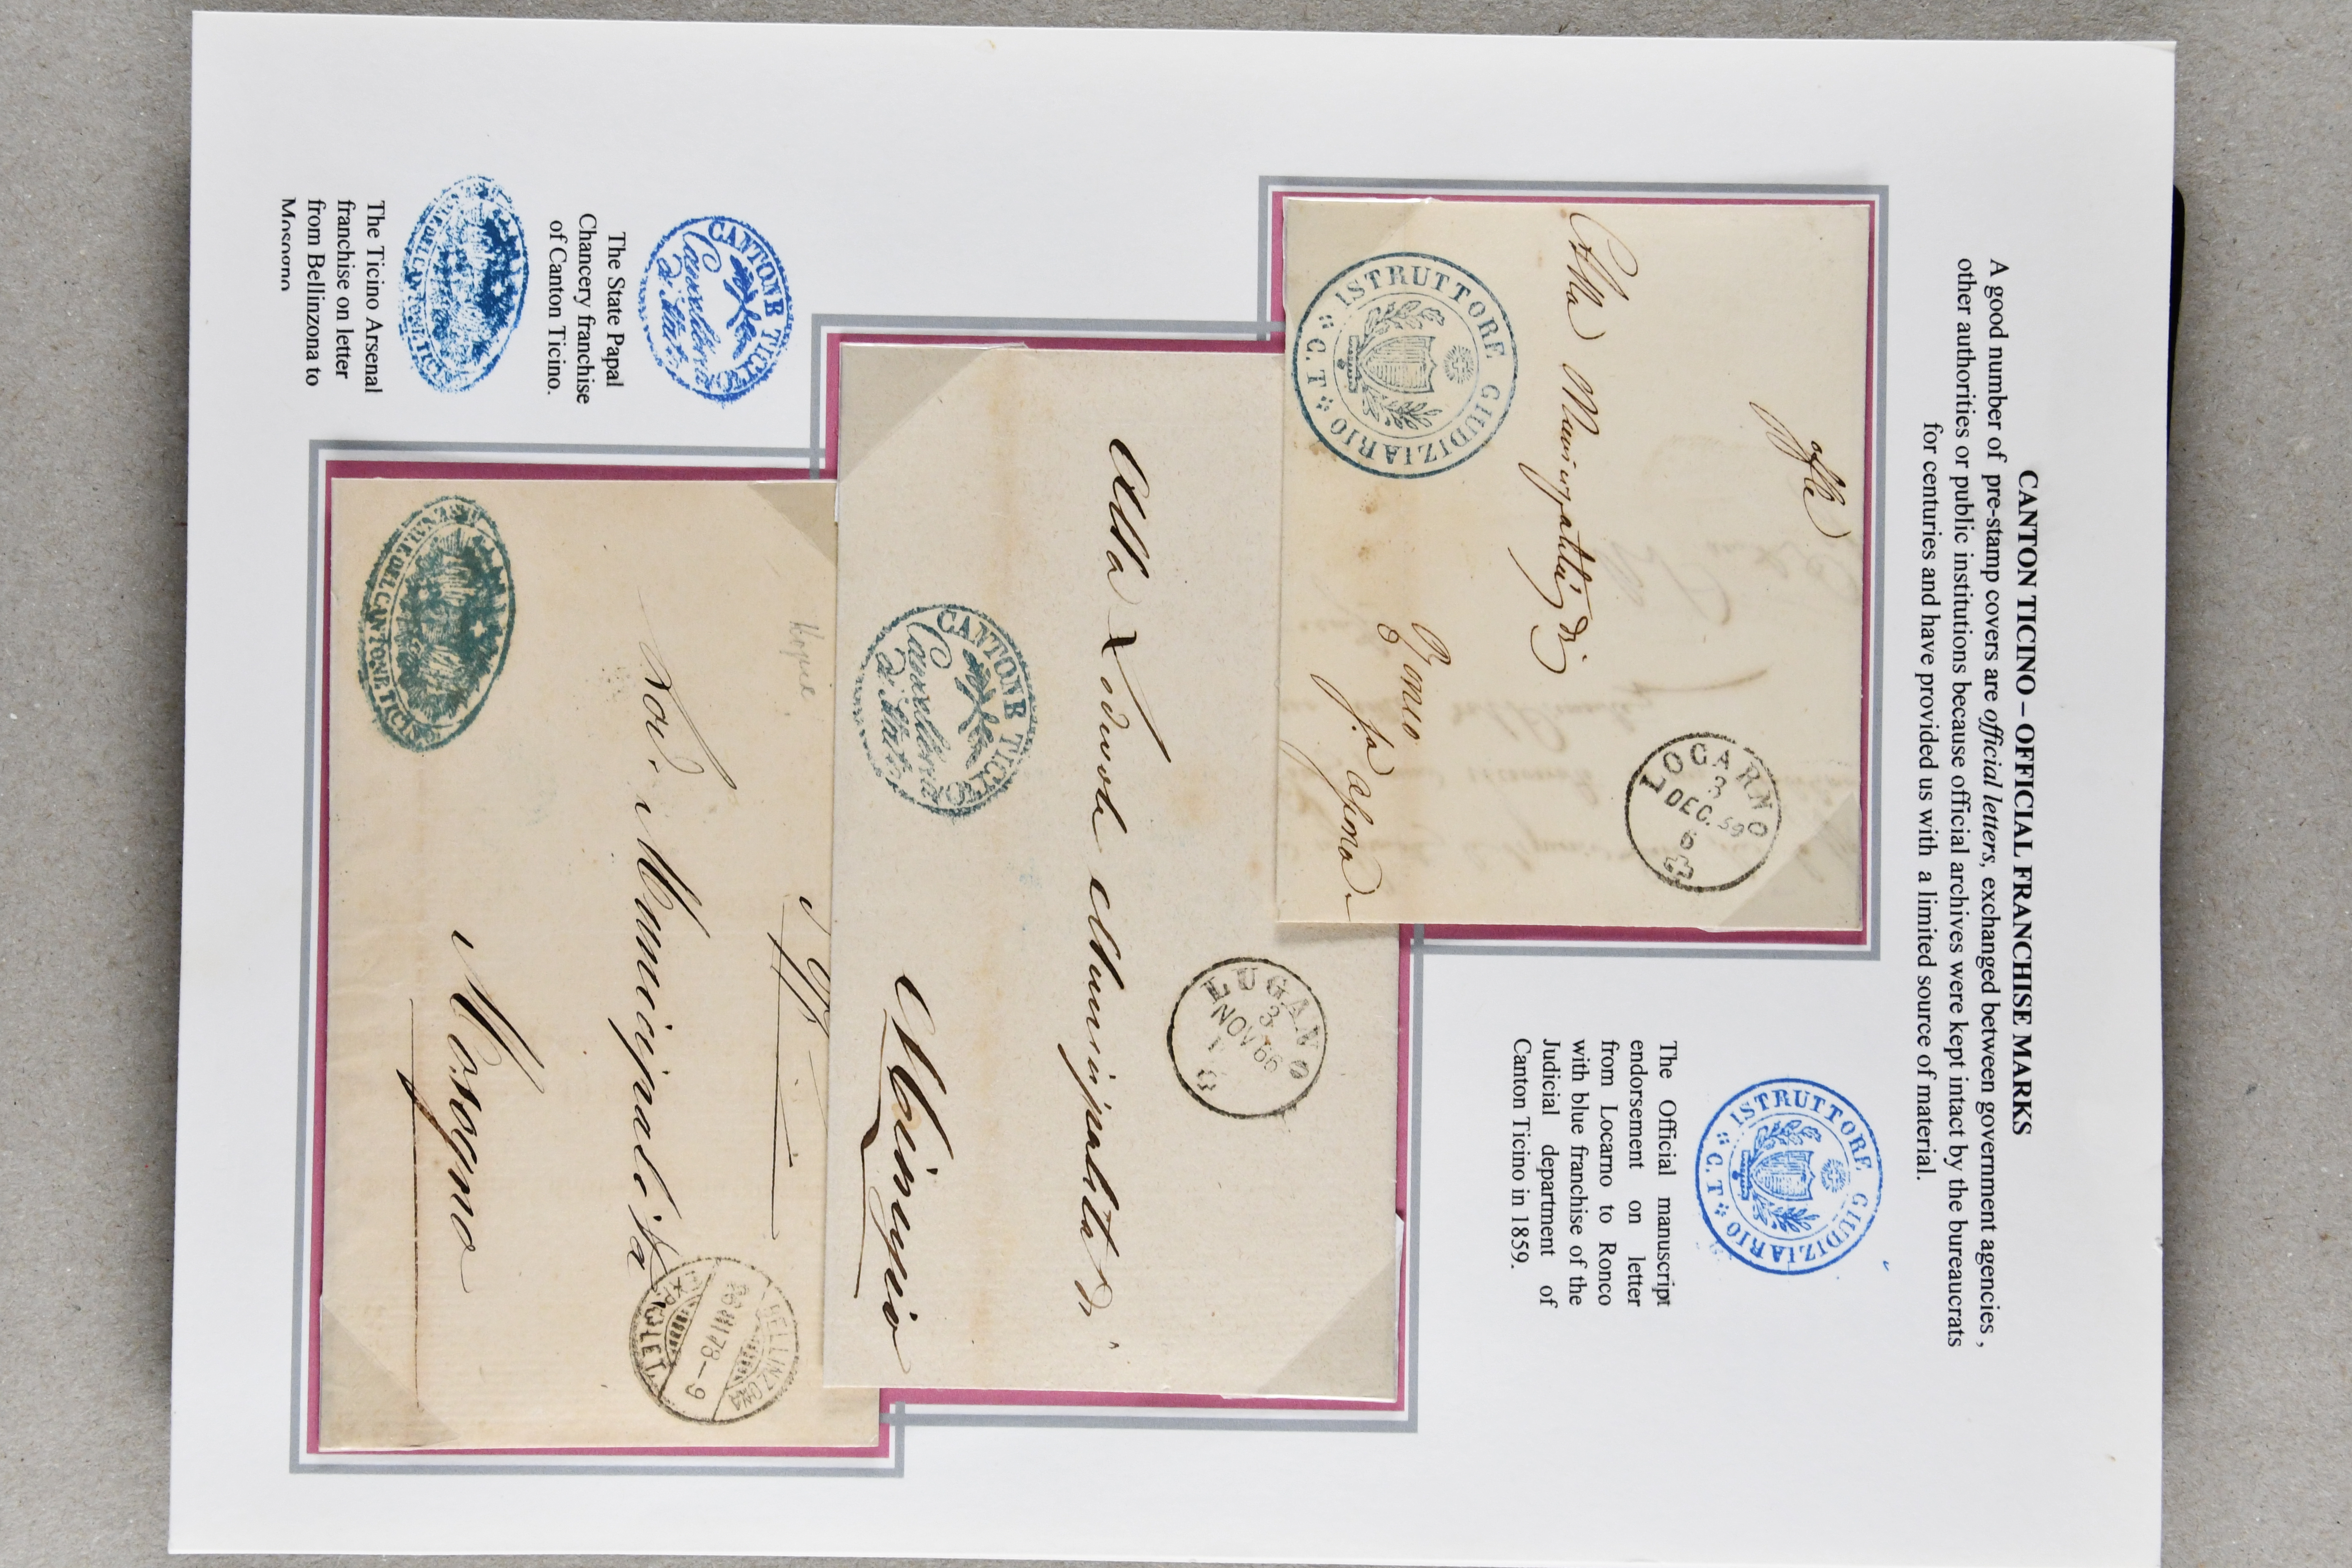 CANTON TICINO – OFFICIAL FRANCHISE MARKS
A good number of pre-stamp covers are official letters, exchanged between government agencies ,
other authorities or public institutions because official archives were kept intact by the bureaucrats
for centuries and have provided us with a limited source of material.
ISTRUTTORE GIUDIZIARIO
C. T
The Official manuscript
endorsement on letter
from Locarno to Ronco
with blue franchise of the
Judicial department of
Canton Ticino in 1859.
LOCARNO
3
DEC. 59
6
Alla Municipalità di
Ronco
ISTRUTTORE GIUDIZIARIO
C. T
LUGANO
3
NOV 66
Alla Lodevole Municipalità di
CANTONE TICINO
Cancelleria
di Stato
Mairengo
CANTONE TICINO
Cancelleria
di Stato
The State Papal
Chancery franchise
of Canton Ticino.
The Ticino Arsenal
franchise on letter
from Bellinzona to
Mosogno
BELLINZONA
EXP. LET
Lod. Municipalità
Mosogno
DEL CANTONE TICINO